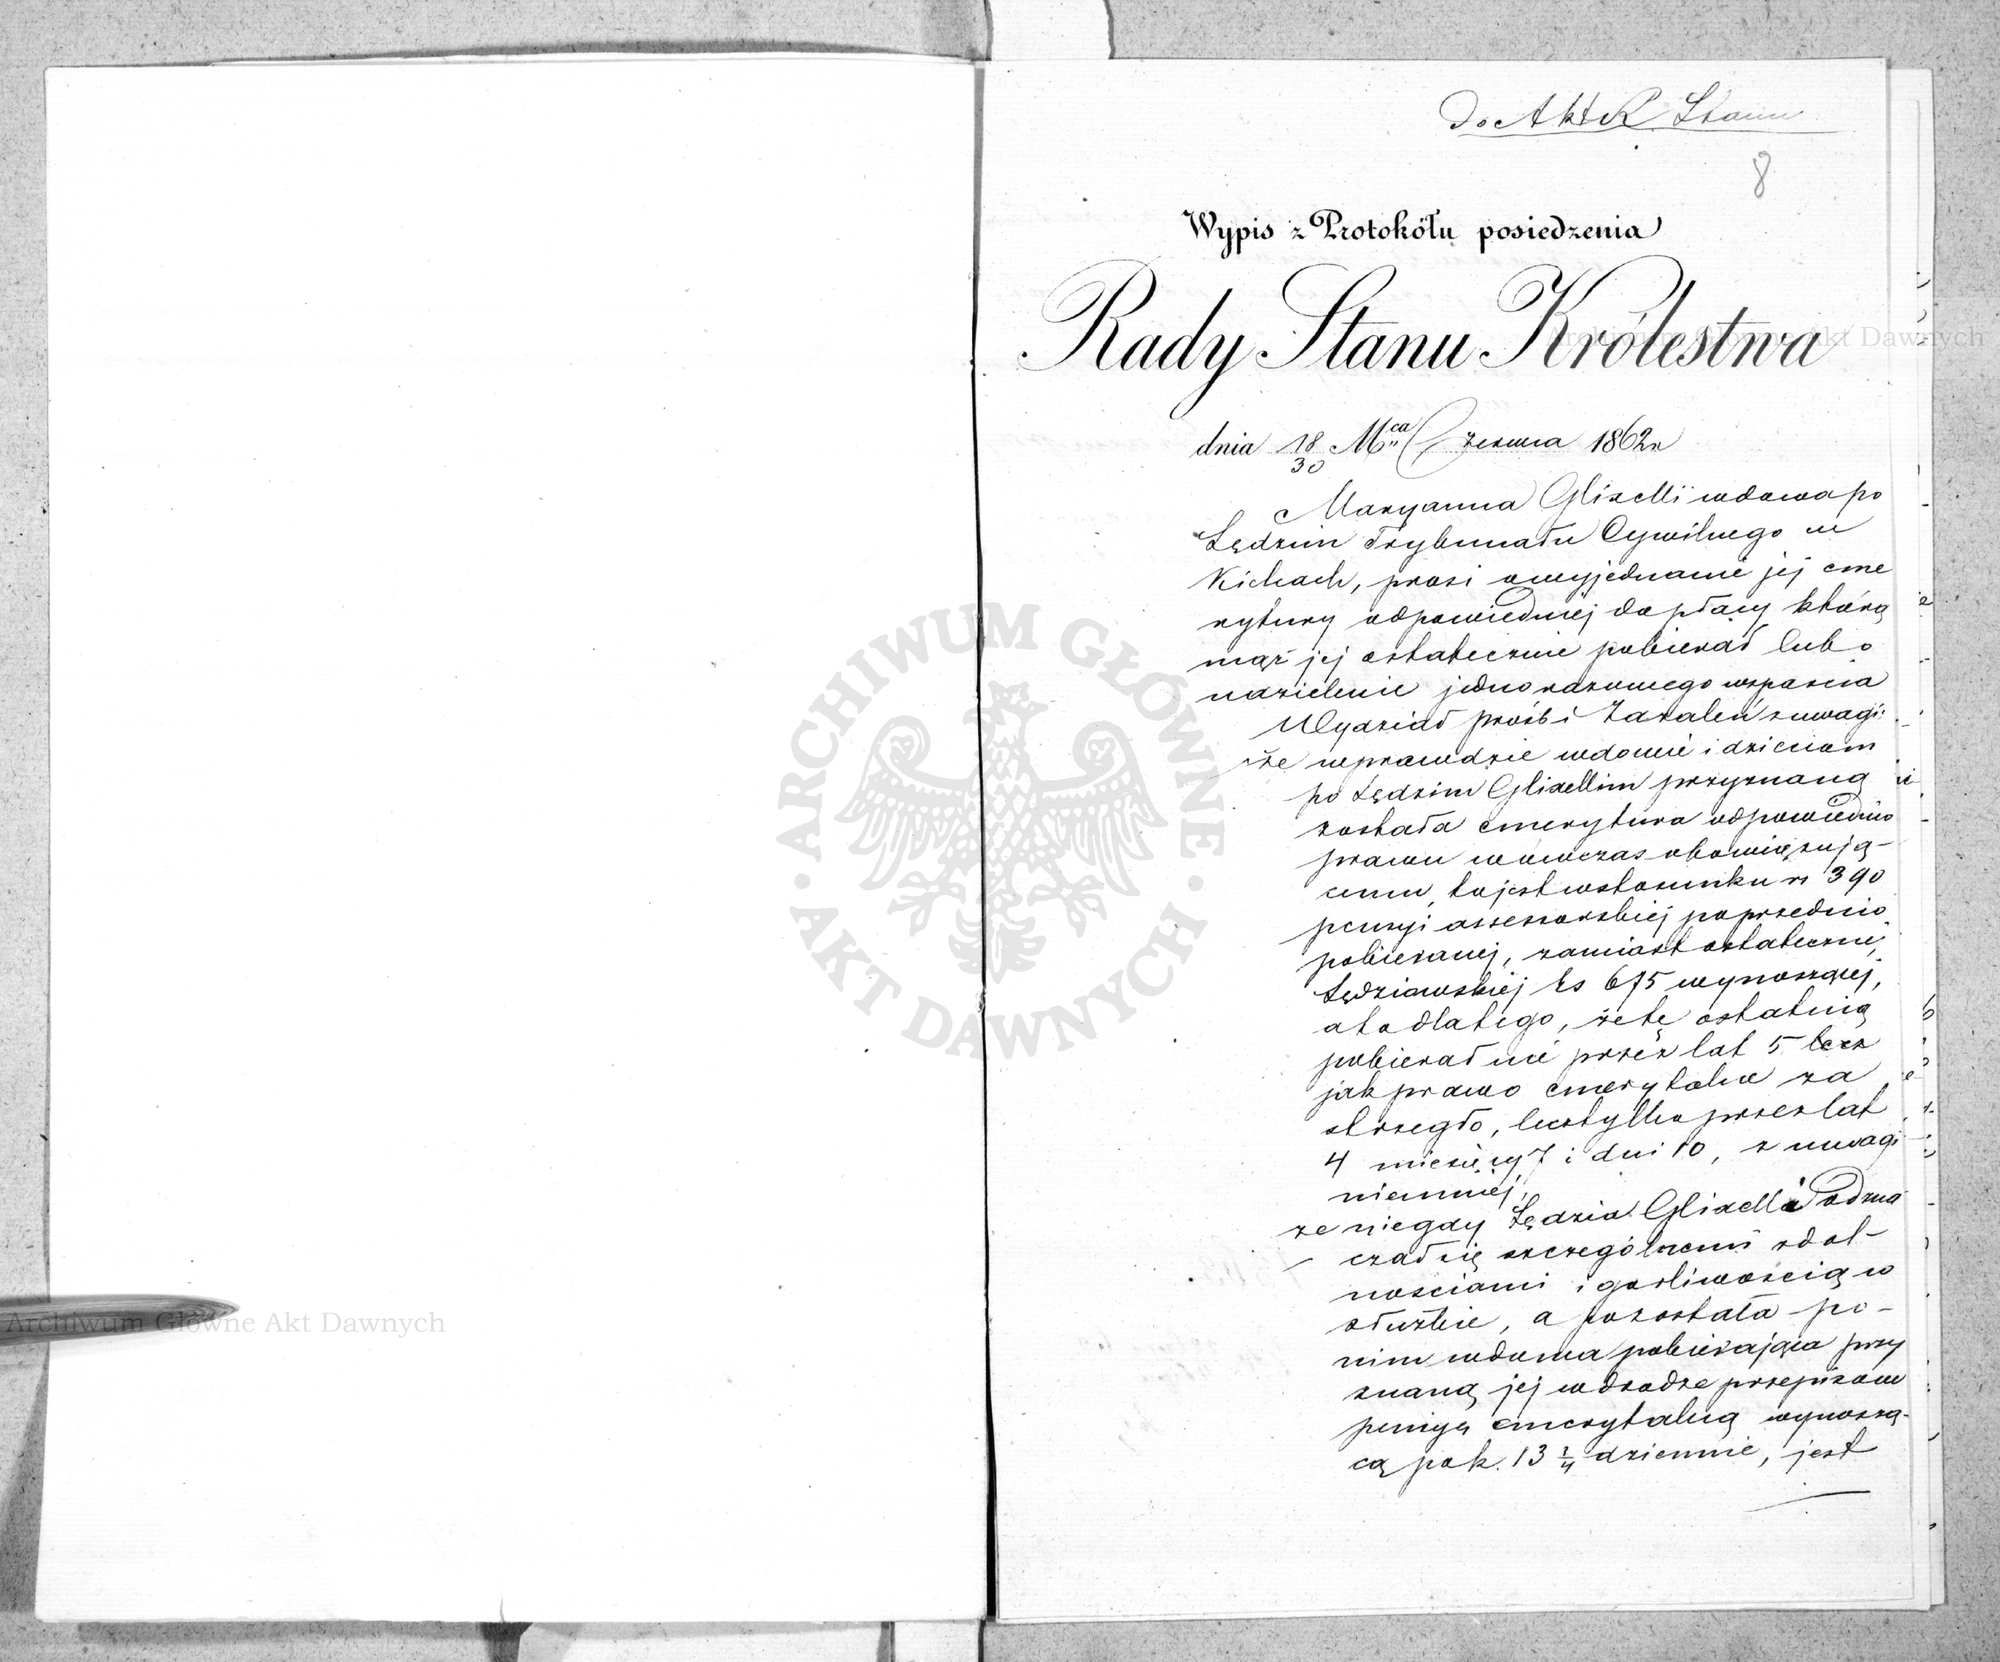 do Akt R Stanu
8
Wypis z Protokółu posiedzenia
Rady Stanu Królestwa
dnia 18/30 Mca Czerwca 1862 r
Maryanna Glixelli wdowa po
Sędzim Trybunału Cywilnego w
Kielcach, prosi o wyjednanie jej eme
rytury odpowiedniej do płacy którą
mąż jej ostatecznie pobierał lub o
udzielenie jednorazowego wsparcia
Wydział próśb i zażaleń z uwagi:
że wprawdzie wdowie i dzieciom
po Sędzim Glixellim przyznaną
została emerytura odpowiednio
prawu wówczas obowiązują-
cemu, to jest w stosunku rs 390
pensyi assessorskiej poprzednio
pobieranej, zamiast ostatecznej
Sędziowskiej rs 675 wynoszącej,
a to dlatego, że tę ostatnią
pobierał nie przez lat 5
jak prawo emerytalne za
strzegło, lecz tylko przez lat
4 miesięcy 7 i dni 10, z uwagi
niemniej,
że niegdy Sędzia Glixelli odzna
czał się szczególnemi zdol-
nościami i gorliwością w
służbie, a pozostała po-
nim wdowa pobierająca przy
znaną jej w drodze przepisów
pensyę emerytalną wynoszą-
cą po k. 13 1/4 dziennie, jest
ARCHIWUM GŁÓWNE
AKT DAWNYCH
Archiwum Główne Akt Dawnych
Archiwum Główne Akt Dawnych